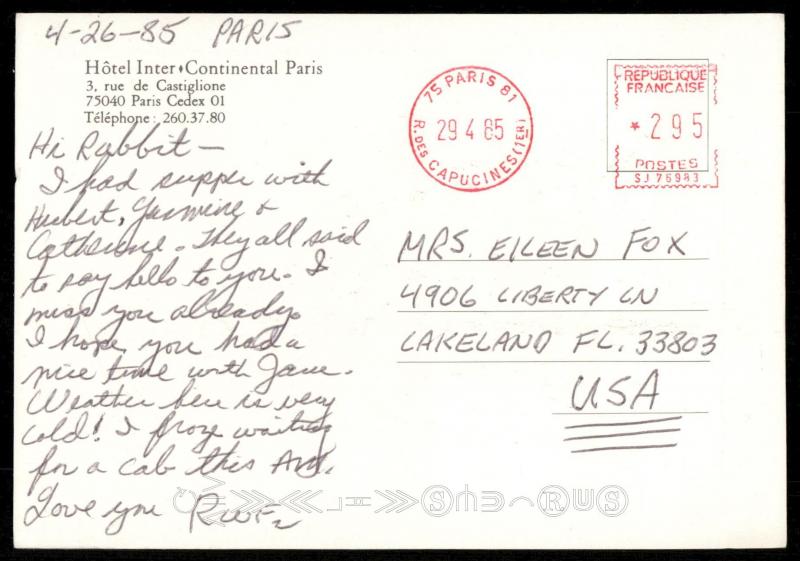 4-26-85 PARIS
Hôtel Inter•Continental Paris
3, rue de Castiglione
75040 Paris Cedex 01
Téléphone: 260.37.80
Hi Rabbit —
I had supper with
Hubert, Yasmine &
Catherine. They all said
to say hello to you. I
miss you already.
I hope you had a
nice time with Jane.
Weather here is very
cold! I froze waiting
for a cab this
Love you RWF
75 PARIS 81
29 4 85
R. DES CAPUCINES (1ER)
REPUBLIQUE
FRANCAISE
* 295
POSTES
SJ 75983
MRS. EILEEN FOX
4906 LIBERTY LN
LAKELAND FL. 33803
USA